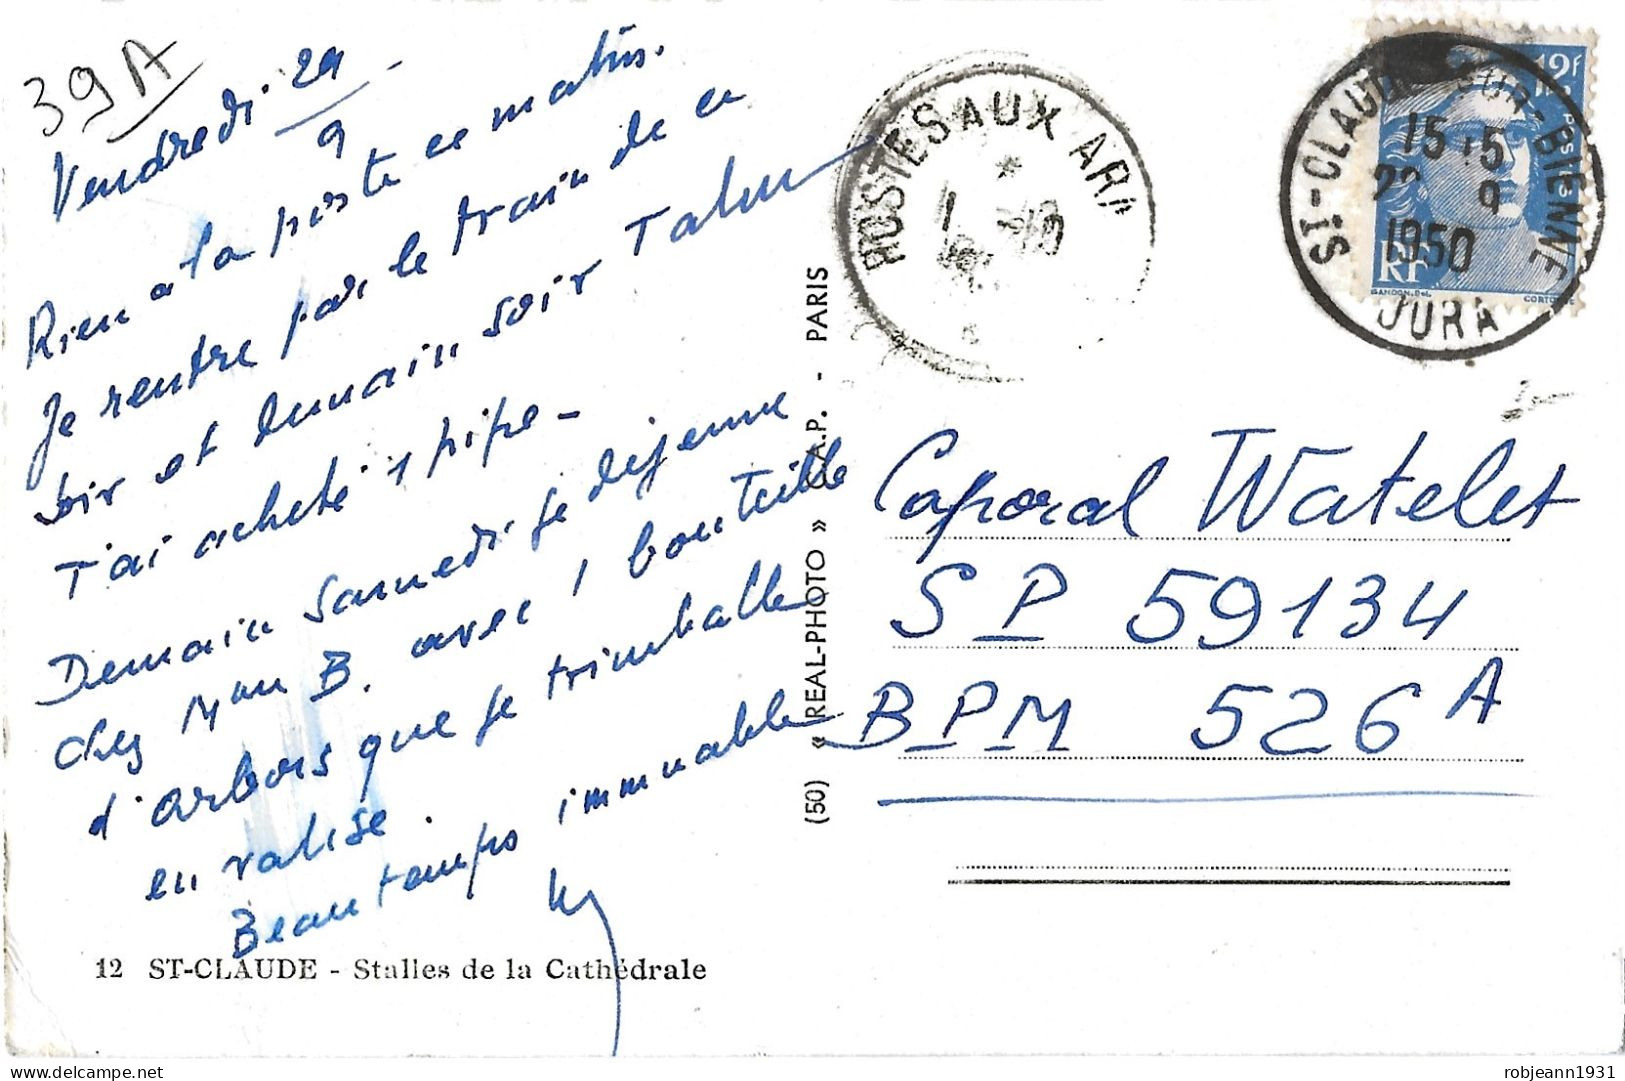 39A
Vendredi 29/9 -
Rien a la poste ce matin.
Je rentre par le train de ce
soir et demain soir
J'ai acheté 1 pipe -
Demain samedi je déjeune
chez Mme B. avec 1 bouteille
d'arbois que je trimballe
en valise.
Beau temps immuable
12 ST-CLAUDE - Stalles de la Cathédrale
(50) « REAL-PHOTO » C.A.P. - PARIS
POSTES AUX AR
*
ST-CLAUDE SUR-BIENNE
15
9
1950
JURA
12F
POSTES
RF
GANDON.Del.
Caporal Watelet
SP 59134
BPM 526 A
robjeann1931